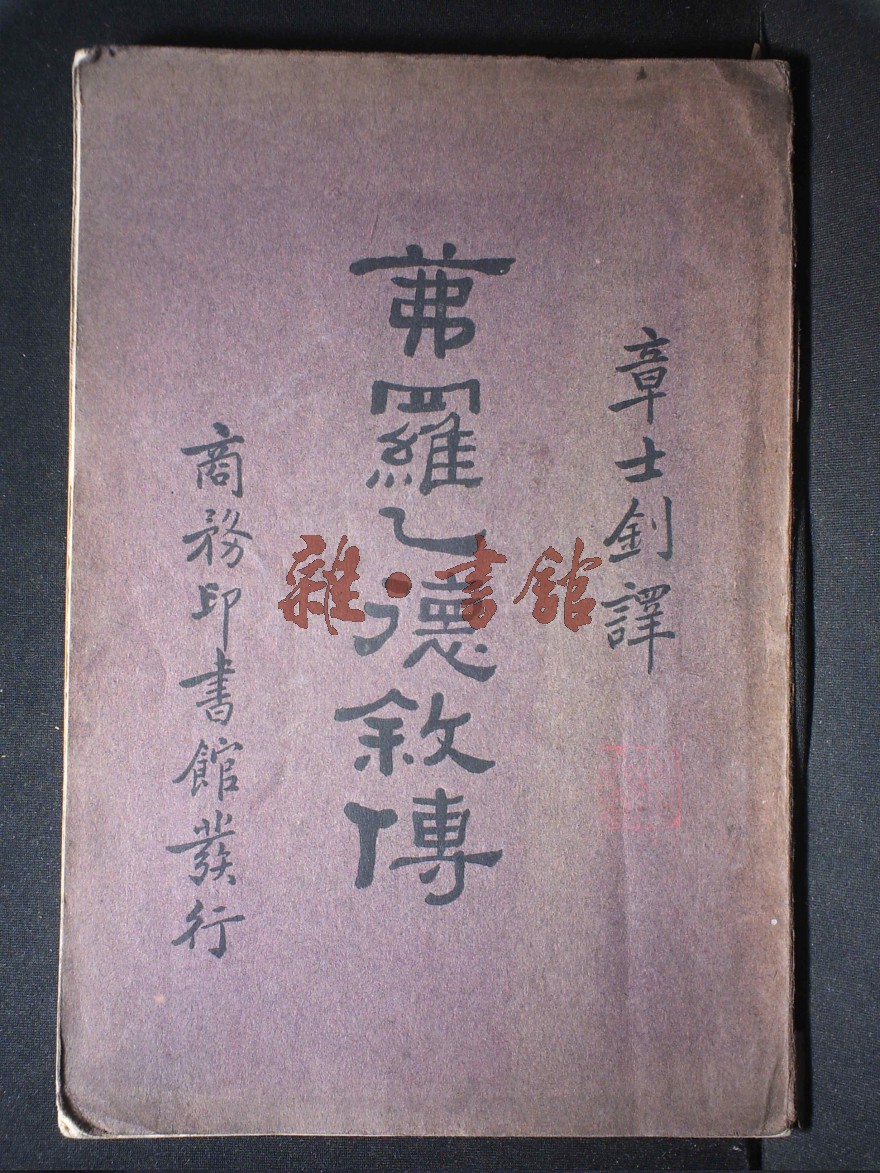 章士釗譯
茀羅乙德敘傳
商務印書館發行
雜·書館